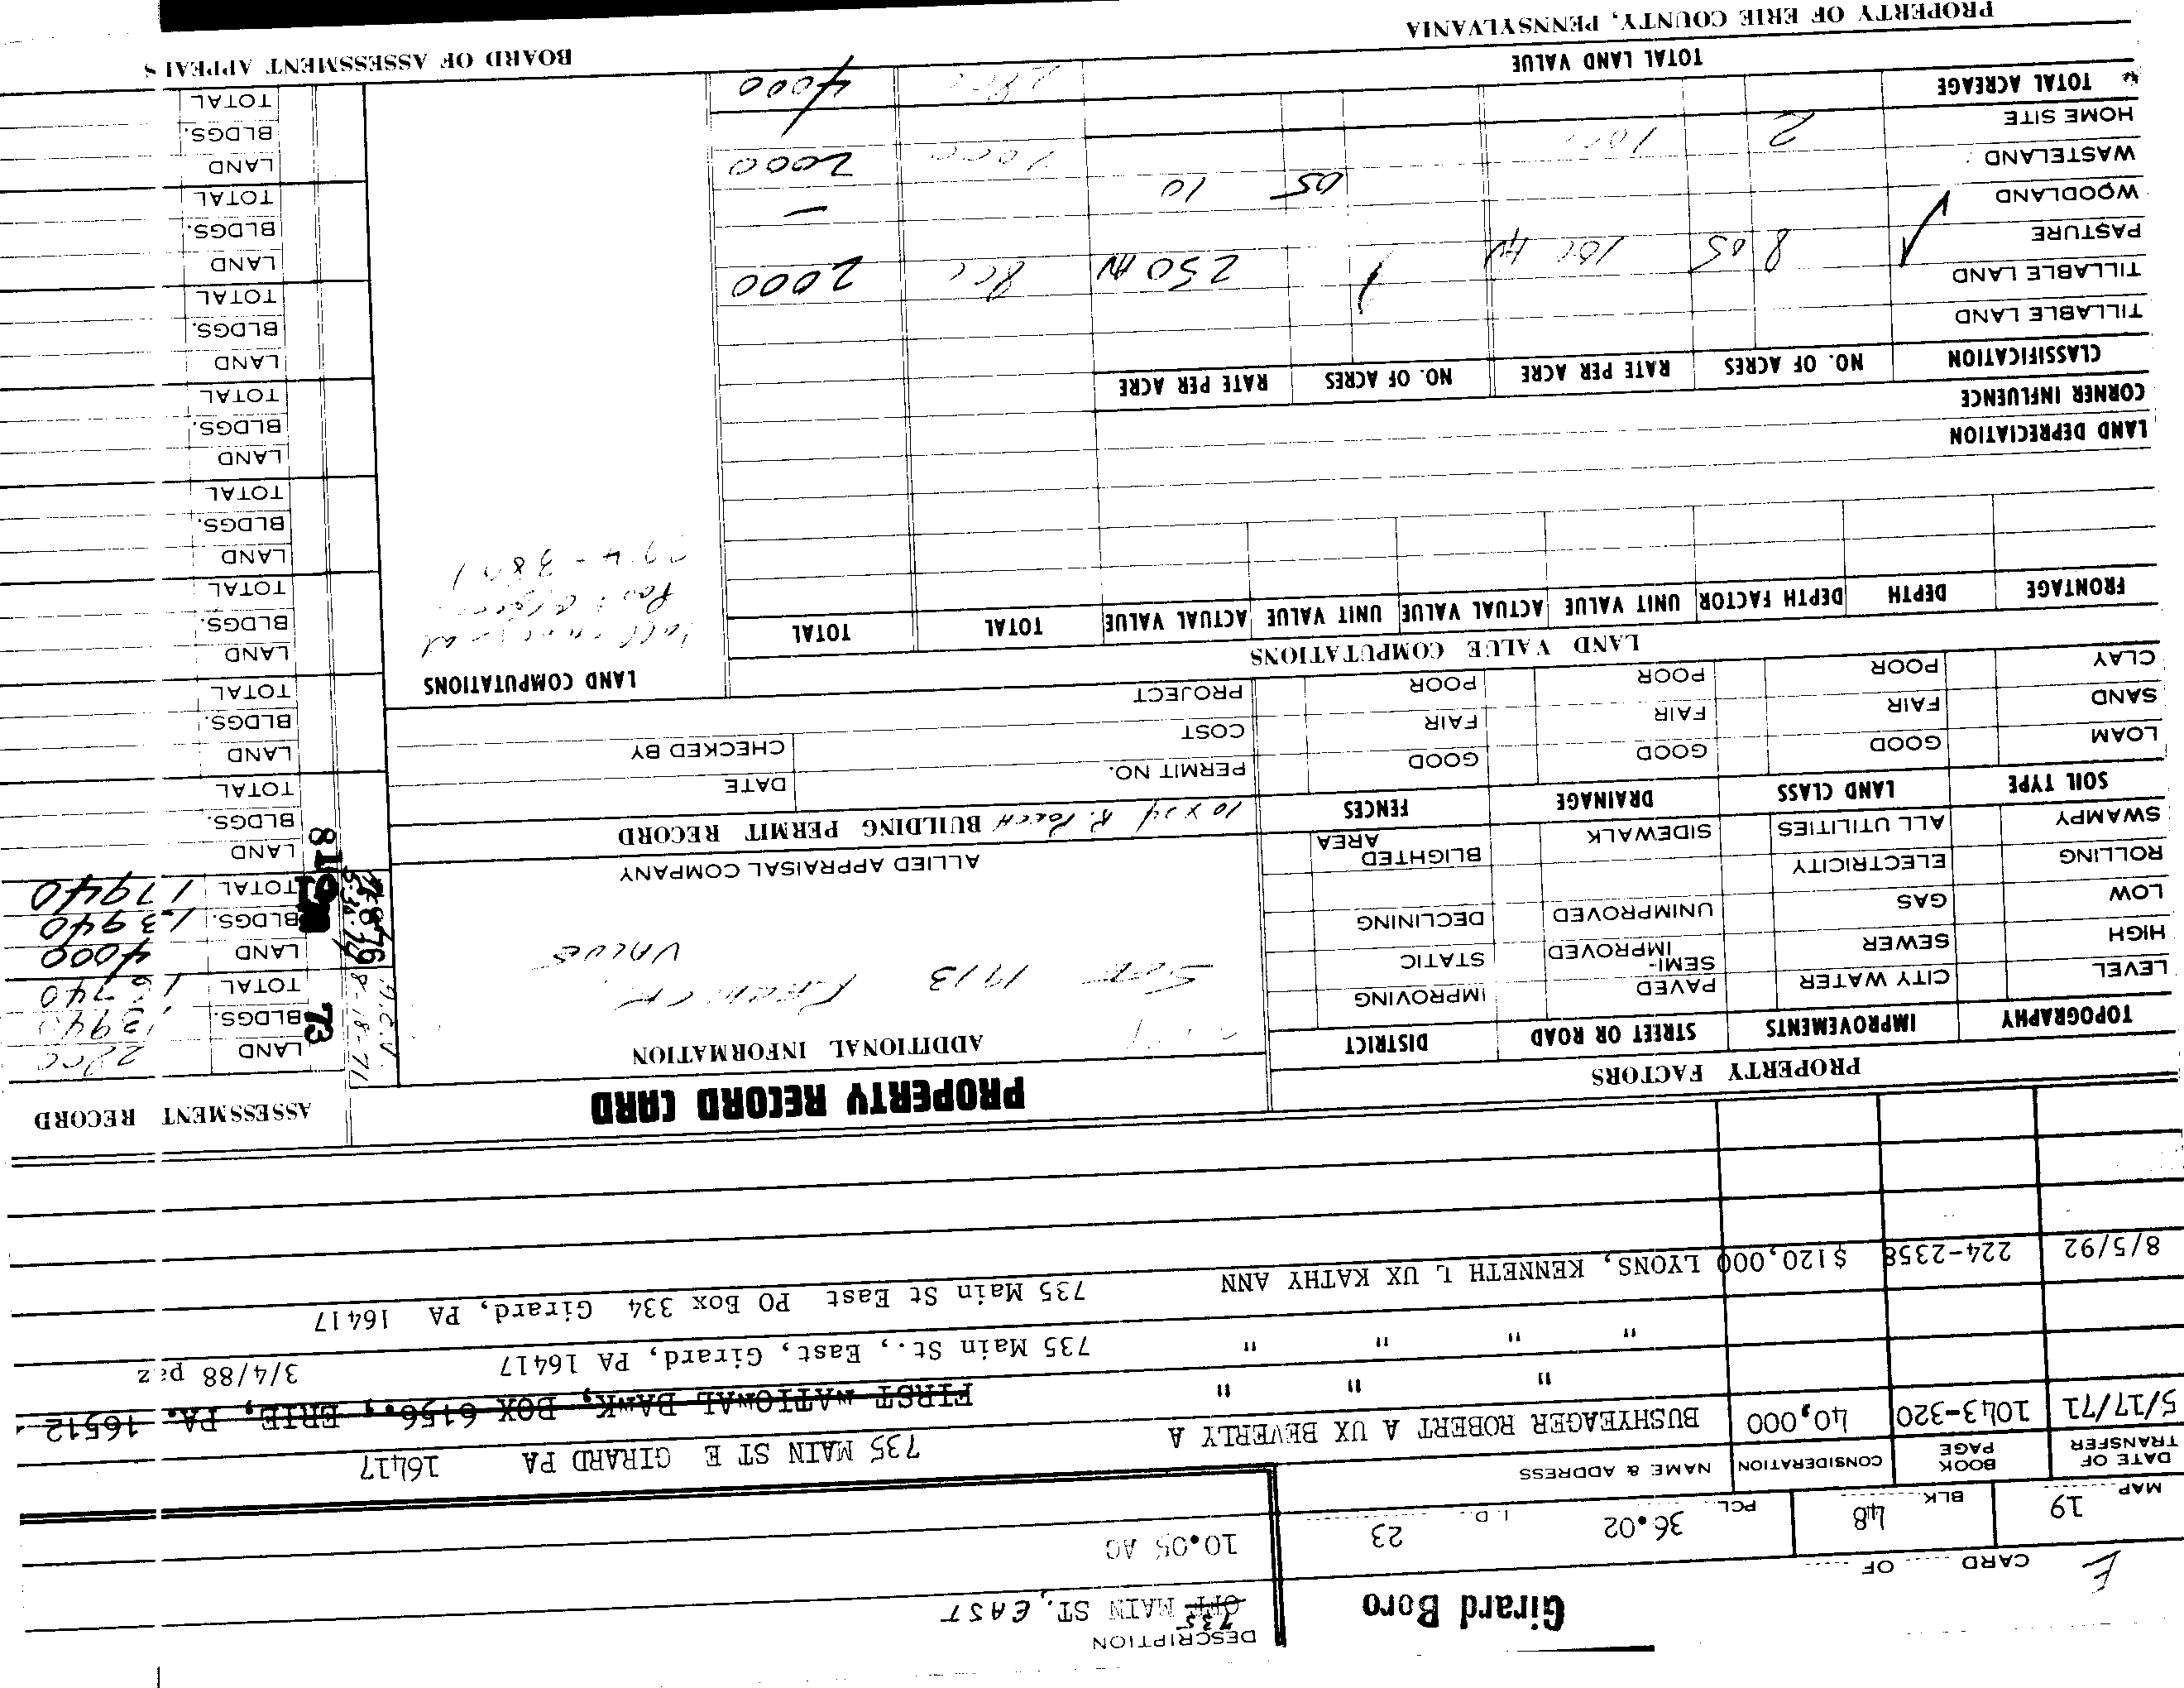 DESCRIPTION
Girard Boro
735 OFF MAIN ST. EAST
E CARD OF
10.05 AC
MAP 19 BLK 48 PCL. 36.02 I.D. 23
DATE OF TRANSFER BOOK PAGE CONSIDERATION NAME & ADDRESS
5/17/71 1043-320 40,000 BUSHYEAGER ROBERT A UX BEVERLY A 735 MAIN ST E GIRARD PA 16417
" " " FIRST NATIONAL BANK, BOX 6156., ERIE, PA. 16512
" " " " 735 Main St., East, Girard, PA 16417 3/4/88
8/5/92 224-2358 $120,000 LYONS, KENNETH L UX KATHY ANN 735 Main St East PO Box 334 Girard, PA 16417
PROPERTY FACTORS
PROPERTY RECORD CARD
ASSESSMENT RECORD
TOPOGRAPHY IMPROVEMENTS STREET OR ROAD DISTRICT
LEVEL CITY WATER PAVED IMPROVING
HIGH SEWER SEMI-IMPROVED STATIC
LOW GAS UNIMPROVED DECLINING
ROLLING ELECTRICITY BLIGHTED AREA
SWAMPY ALL UTILITIES SIDEWALK
SOIL TYPE LAND CLASS DRAINAGE FENCES
LOAM GOOD GOOD GOOD
SAND FAIR FAIR FAIR
CLAY POOR POOR POOR
ADDITIONAL INFORMATION
VALUE
ALLIED APPRAISAL COMPANY
10 x 24 R. PORCH BUILDING PERMIT RECORD
PERMIT NO. DATE
COST CHECKED BY
PROJECT
73
LAND 2800
BLDGS. 13940
TOTAL 16740
LAND 4000
BLDGS. 13940
TOTAL 17940
81
LAND
BLDGS.
TOTAL
LAND
BLDGS.
TOTAL
LAND
BLDGS.
TOTAL
LAND
BLDGS.
TOTAL
LAND
BLDGS.
TOTAL
LAND
BLDGS.
TOTAL
LAND
BLDGS.
TOTAL
LAND
BLDGS.
TOTAL
LAND VALUE COMPUTATIONS
LAND COMPUTATIONS
FRONTAGE DEPTH DEPTH FACTOR UNIT VALUE ACTUAL VALUE UNIT VALUE ACTUAL VALUE TOTAL TOTAL
LAND DEPRECIATION
CORNER INFLUENCE
CLASSIFICATION NO. OF ACRES RATE PER ACRE NO. OF ACRES RATE PER ACRE
TILLABLE LAND
TILLABLE LAND 8.05 100 AV 250 AV 800 2000
PASTURE
WOODLAND 05 10 -
WASTELAND
HOME SITE 2 1000 2000 2000
TOTAL ACREAGE
TOTAL LAND VALUE 2800 4000
PROPERTY OF ERIE COUNTY, PENNSYLVANIA
BOARD OF ASSESSMENT APPEALS